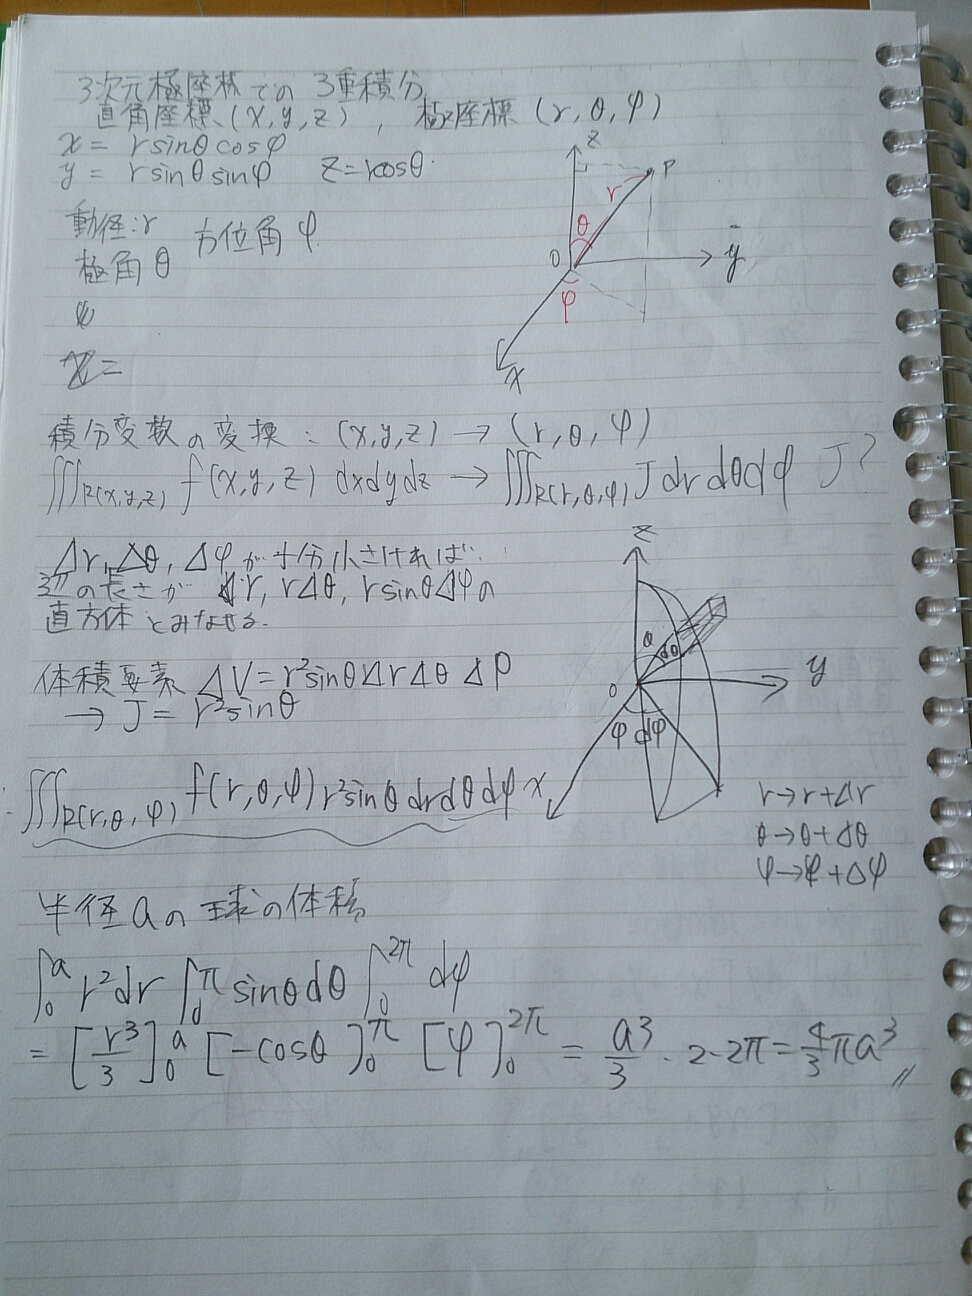 3次元極座標での 3重積分
直角座標、(x, y, z) , 極座標 (r, θ, φ)
x = r sinθ cosφ
y = r sinθ sinφ z = r cosθ
z
P
r
θ
O
y
φ
x
動径:r 方位角 φ
極角 θ
積分変数の変換: (x, y, z) → (r, θ, φ)
∭R(x,y,z) f(x, y, z) dxdydz → ∭R(r,θ,φ) J dr dθ dφ J?
Δr, Δθ, Δφ が十分小さければ
3辺の長さが Δr, rΔθ, r sinθΔφの
直方体とみなせる.
体積要素 ΔV = r²sinθ Δr Δθ Δφ
→ J = r²sinθ
z
θ
dθ
O
y
φ dφ
x
∭R(r,θ,φ) f(r, θ, φ) r²sinθ dr dθ dφ
r → r+Δr
θ → θ+Δθ
φ → φ+Δφ
半径aの球の体積
∫₀ᵃ r²dr ∫₀^π sinθdθ ∫₀^2π dφ
= [r³/3]₀ᵃ [-cosθ]₀^π [φ]₀^2π = a³/3 · 2·2π = 4/3 πa³ //